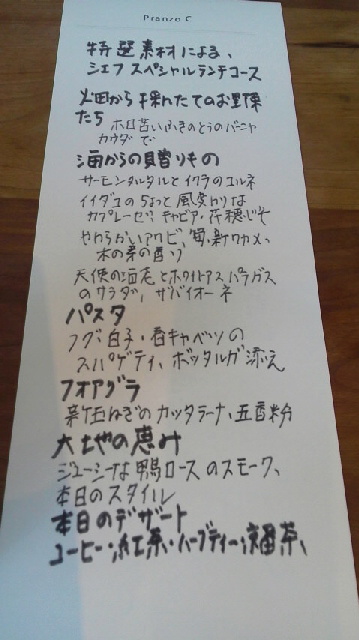 Pranzo C
特選素材による、
シェフ スペシャルランチコース
畑から採れたてのお野菜
たち ホロ苦いふきのとうのバーニャ
カウダで
海からの贈りもの
サーモンタルタルとイクラのコルネ
イイダコのちょっと風変わりな
カプレーゼ、キャビア・花穂じそ
やわらかいアワビ、筍、新ワカメ、
木の芽の香り
天使の海老とホワイトアスパラガス
のサラダ、ザバイオーネ
パスタ
フグ白子・春キャベツの
スパゲティ、ボッタルガ添え
フォアグラ
新玉ねぎのカッタラーナ、五香粉
大地の恵み
ジューシーな鴨ロースのスモーク、
本日のスタイル
本日のデザート
コーヒー・紅茶・ハーブティー・